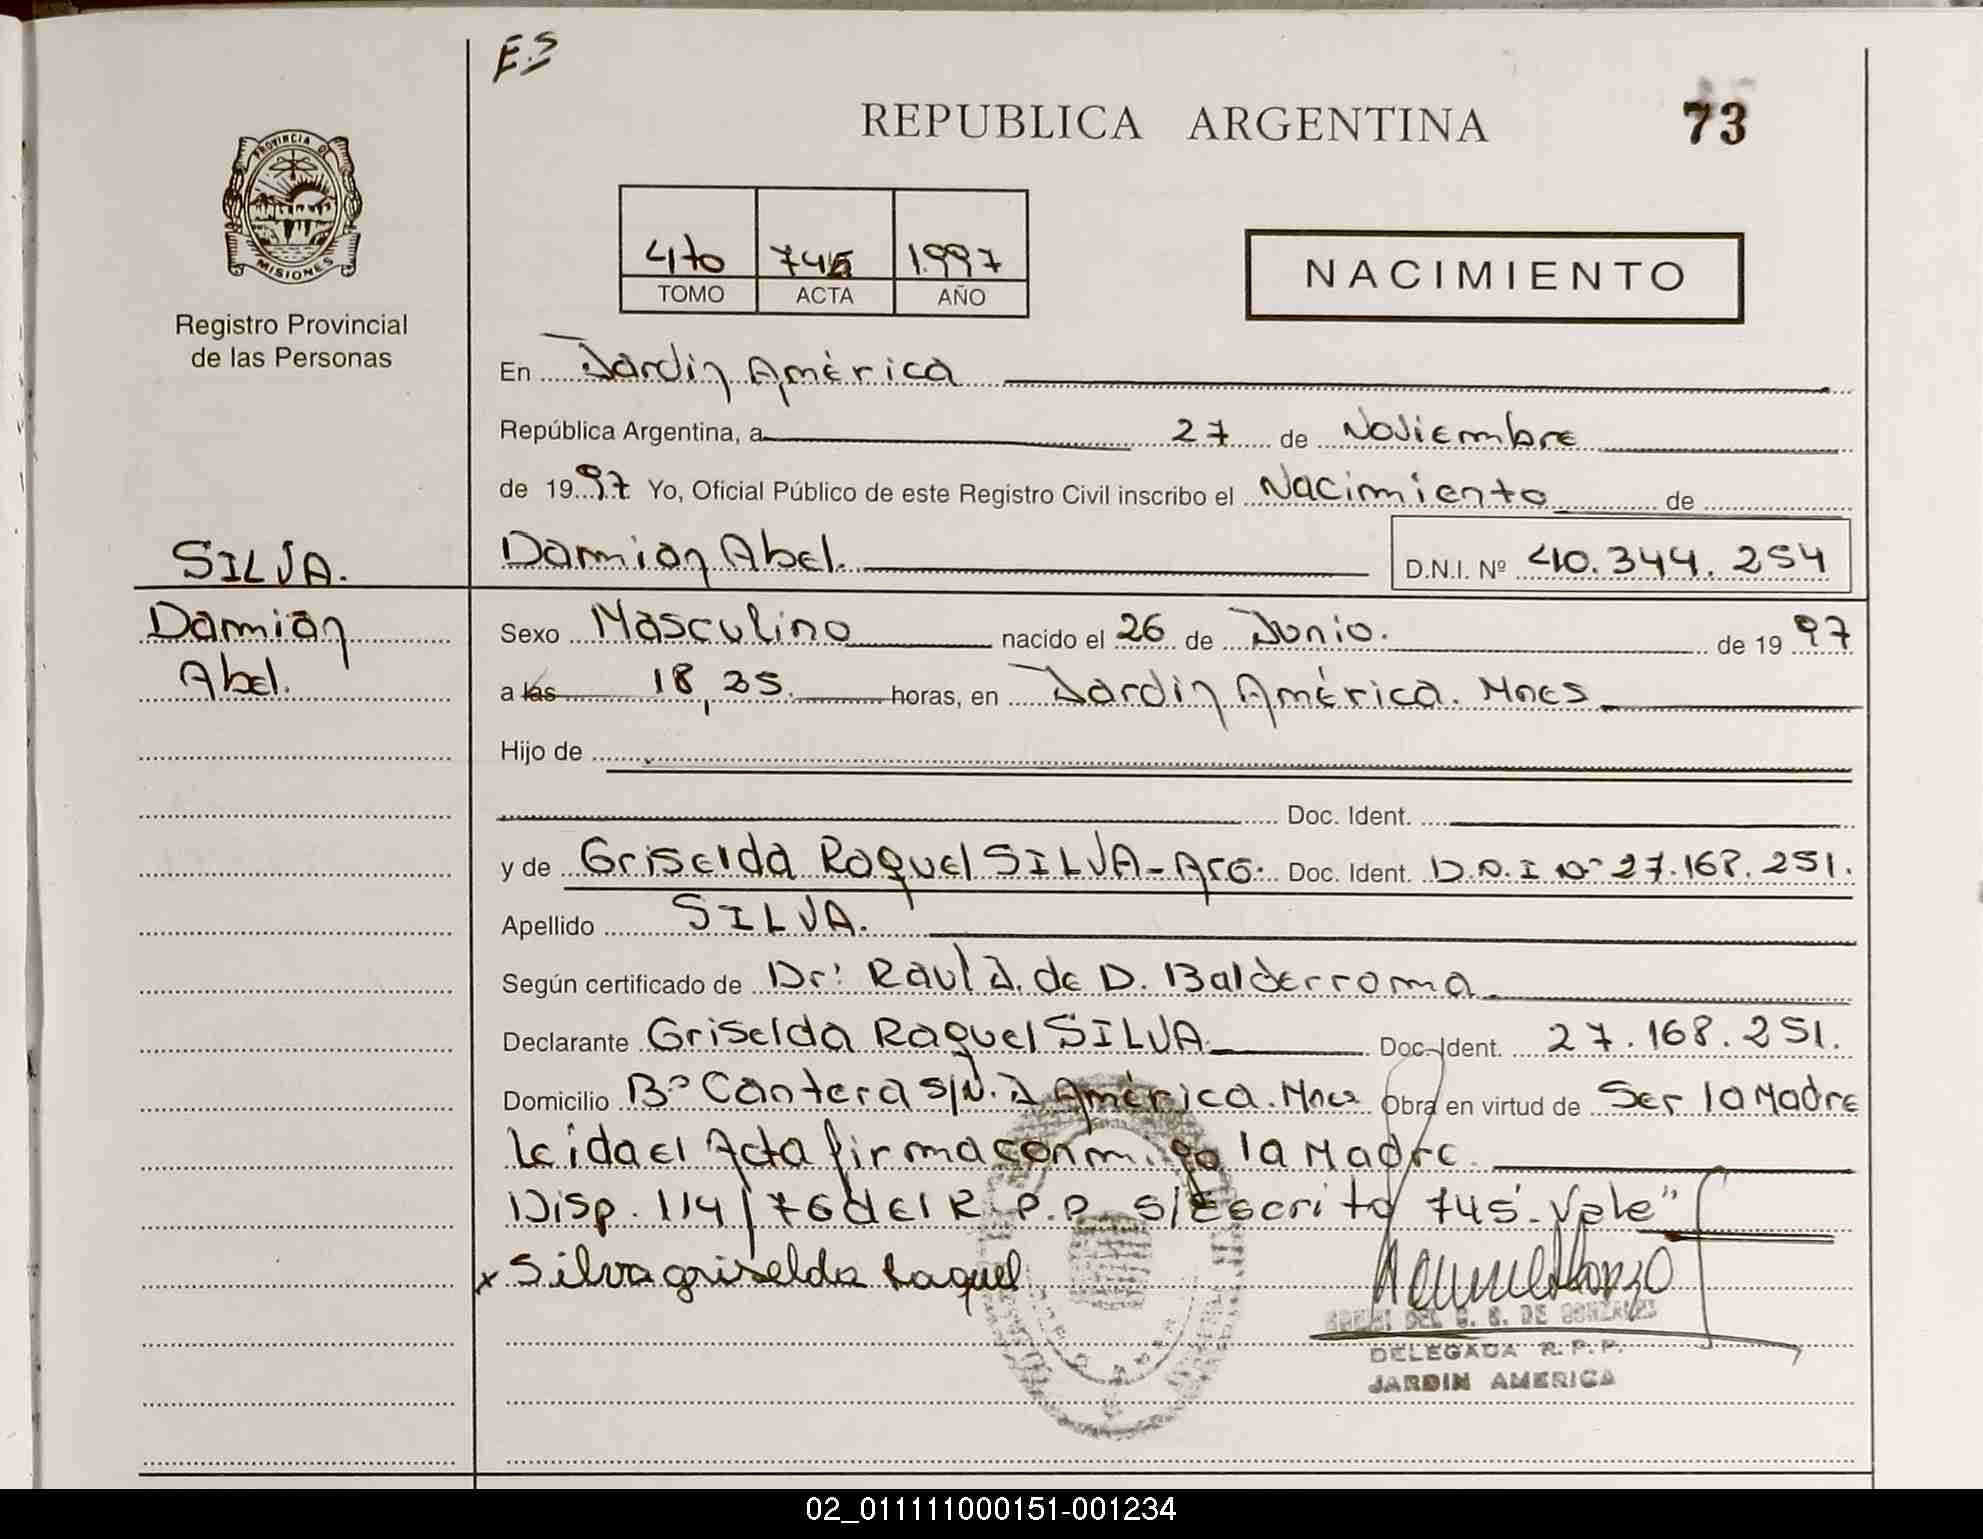 E.S
REPUBLICA ARGENTINA
73
PROVINCIA DE
MISIONES
Registro Provincial
de las Personas
470 745 1.997
TOMO ACTA AÑO
NACIMIENTO
En Jardin América
República Argentina, a 27 de Noviembre
de 1997 Yo, Oficial Público de este Registro Civil inscribo el Nacimiento de
SILVA.
Damian Abel. D.N.I. Nº 40.344.254
Damian
Abel.
Sexo Masculino nacido el 26 de Junio. de 1997
a las 18,35. horas, en Jardin América. Mnes
Hijo de
Doc. Ident.
y de Griselda Raquel SILVA-Arg. Doc. Ident. D.N.I Nº 27.168.251.
Apellido SILVA.
Según certificado de Dr: Raul J. de D. Balderrama
Declarante Griselda Raquel SILVA Doc. Ident. 27.168.251.
Domicilio Bº Cantera S/N. J América. Mnes Obra en virtud de Ser la Madre
Leida el Acta firma conmigo la Madre
Disp. 114/76 del R.P.P. S/Escrito 745. Vale"
x Silva griselda Raquel
DEL S. DE GONZALES
DELEGADA R.P.P.
JARDIN AMERICA
02_011111000151-001234